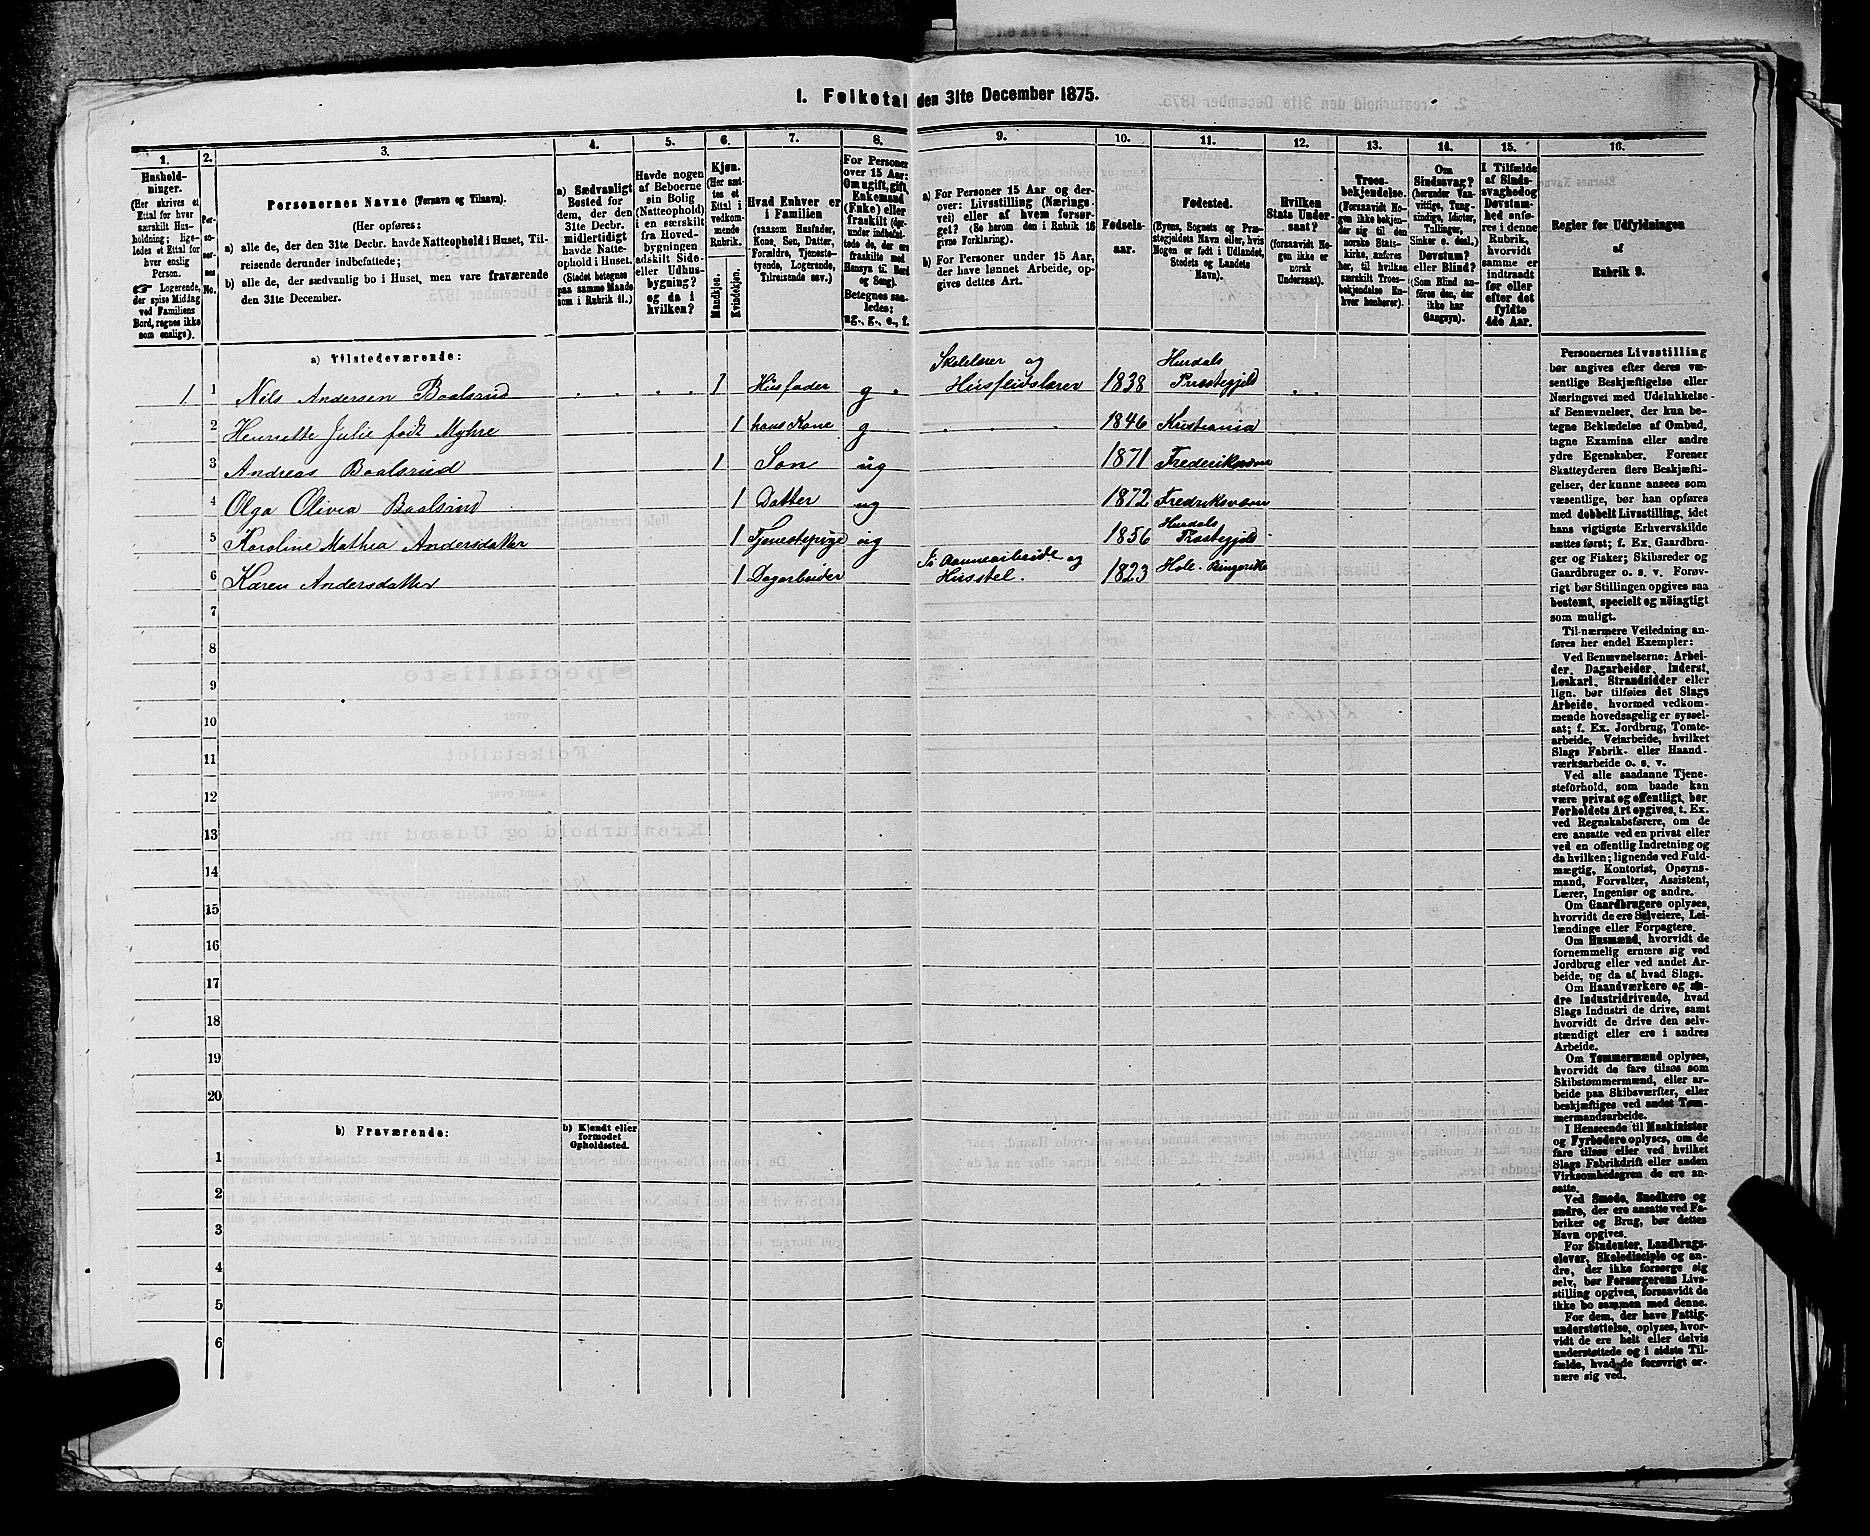 1. Folketal den 31te December 1875.
1. 2. 3. 4. 5. 6. 7. 8. 9. 10. 11. 12. 13. 14. 15. 16.
Hushold-
ninger.
(Her skrives et
Ettal for hver
særskilt Hus-
holdning; lige-
ledes et Ettal for
hver enslig
Person.
☞ Logerende,
der spise Middag
ved Familiens
Bord, regnes ikke
som enslige).
Per-
so-
ner-
nes
No.
Personernes Navne (Fornavn og Tilnavn).
(Her opføres:
a) alle de, der den 31te Decbr. havde Natteophold i Huset, Til-
reisende derunder indbefattede;
b) alle de, der sædvanlig bo i Huset, men vare fraværende
den 31te December.
a) Sædvanligt
Bosted for
dem, der den
31te Decbr.
midlertidigt
havde Natte-
ophold i Huset.
(Stedet betegnes
paa samme Maade
som i Rubrik 11.)
Havde nogen
af Beboerne
sin Bolig
(Natteophold)
i en særskilt
fra Hoved-
bygningen
adskilt Side-
eller Udhus-
bygning?
og da i
hvilken?
Kjøn.
(Her sæt-
tes et
Ettal i
vedkom-
mende
Rubrik.
Mandkjøn.
Kvindekjøn.
Hvad Enhver er
i Familien
(saasom Husfader,
Kone, Søn, Datter,
Forældre, Tjeneste-
tyende, Logerende,
Tilreisende osv.)
For Personer
over 15 Aar:
Om ugift, gift,
Enkemand
(Enke) eller
fraskilt (der-
under indbefat-
tede de, der ere
fraskilte med
Hensyn til Bord
og Seng).
Betegnes saa-
ledes:
ug., g., e., f.
a) For Personer 15 Aar og der-
over: Livsstilling (Nærings-
vei) eller af hvem forsør-
get? (Se herom den i Rubrik 16
givne Forklaring).
b) For Personer under 15 Aar,
der have lønnet Arbeide, op-
gives dettes Art.
Fødsels-
aar.
Fødested.
(Byens, Sognets og Præ-
stegjeldets Navn eller, hvis
Nogen er født i Udlandet,
Stedets og Landets
Navn).
Hvilken
Stats Under-
saat?
(forsaavidt No-
gen ikke er
norsk
Undersaat).
Troes-
bekjendelse.
(Forsaavidt No-
gen ikke bekjen-
der sig til den
norske Stats-
kirke, anføres
her, til hvilken
særskilt Troes-
bekjendelse En-
hver henhører).
Om
Sindssvag?
(herunder Van-
vittige, Tung-
sindige, Idioter,
Tullinger,
Sinker o. desl.)
Døvstum?
eller Blind?
(Som Blind an-
føres den, der
ikke har
Gangsyn).
I Tilfælde
af Sinds-
svaghed og
Døvstum-
hed anfø-
res i denne
Rubrik,
hvorvidt
samme er
indtraadt
før eller
efter det
fyldte
4de Aar.
Regler for Udfyldningen
af
Rubrik 9.
a) Tilstedeværende:
1. 1 Nils Andersen Baalsrud 1 Husfader g Skolelærer og Husflidslærer 1838 Hurdals Præstegjeld
2 Henriette Julie født Myhre 1 hans Kone g 1846 Kristiania
3 Andreas Baalsrud 1 Søn ug 1871 Frederiksværn
4 Olga Olivia Baalsrud 1 Datter ug 1872 Fredriksværn
5 Karoline Mathea Andersdatter 1 Tjenestepige ug 1856 Hurdals Præstegjeld
6 Karen Andersdatter 1 Dagarbeider og Husstel. 1823 Hole Ringerike
7
8
9
10
11
12
13
14
15
16
17
18
19
20
b) Fraværende:
b) Kjendt eller
formodet
Opholdssted.
1
2
3
4
5
6
Personernes Livsstilling
bør angives efter deres væ-
sentlige Beskjæftigelse eller
Næringsvei med Udelukkelse
af Benævnelser, der kun be-
tegne Beklædelse af Ombud,
tagne Examina eller andre
ydre Egenskaber. Forener
Skatteyderen flere Beskjæfti-
gelser, der kunne ansees som
væsentlige, bør han opføres
med dobbelt Livsstilling, idet
hans vigtigste Erhvervskilde
sættes først; f. Ex. Gaardbru-
ger og Fisker; Skibsreder og
Gaardbruger o. s. v. Forøv-
rigt bør Stillingen opgives saa
bestemt, specielt og nøiagtigt
som muligt.
Til nærmere Veiledning an-
føres her endel Exempler:
Ved Benævnelserne: Arbei-
der, Dagarbeider, Inderst,
Løskarl, Strandsidder eller
lign. bør tilføies det Slags
Arbeide, hvormed vedkom-
mende hovedsagelig er syssel-
sat; f. Ex. Jordbrug, Tomte-
arbeide, Veiarbeide, hvilket
Slags Fabrik- eller Haand-
værksarbeide o. s. v.
Ved alle saadanne Tjene-
steforhold, som baade kan
være privat og offentligt, bør
Forholdets Art opgives, t. Ex.
ved Regnskabsførere, om de
ere ansatte ved en privat eller
ved en offentlig Indretning og
da hvilken; lignende ved Fuld-
mægtig, Kontorist, Opsyns-
mand, Forvalter, Assistent,
Lærer, Ingeniør og andre.
Om Gaardbrugere oplyses,
hvorvidt de ere Selveiere, Lei-
lændinge eller Forpagtere.
Om Husmænd, hvorvidt de
fornemmelig ernære sig ved
Jordbrug eller ved andet Ar-
beide, og da af hvad Slags.
Om Haandværkere og an-
dre Industridrivende, hvad
Slags Industri de drive, samt
hvorvidt de drive den selv-
stændigt eller ere i andres
Arbeide.
Om Tømmermænd oplyses,
hvorvidt de fare tilsøs som
Skibstømmermænd, eller ar-
beide paa Skibsværfter, eller
beskjæftiges ved andet Tøm-
mermandsarbeide.
I Henseende til Maskinister
og Fyrbødere oplyses, om de
fare tilsøs eller ved hvilket
Slags Fabrikdrift eller anden
Virksomhedsgren de ere an-
satte.
Ved Smede, Snedkere og
andre, der ere ansatte ved Fa-
briker og Brug, bør dettes
Navn opgives.
For Studenter, Landbrugs-
elever, Skoledisciple og an-
dre, der ikke forsørge sig
selv, bør Forsørgerens Livs-
stilling opgives, forsaavidt de
ikke bo sammen med denne.
For dem, der have Fattig-
understøttelse, oplyses, hvor-
vidt de ere helt eller delvis
understøttede og i sidste Til-
fælde, hvad de forøvrigt er-
nære sig ved.